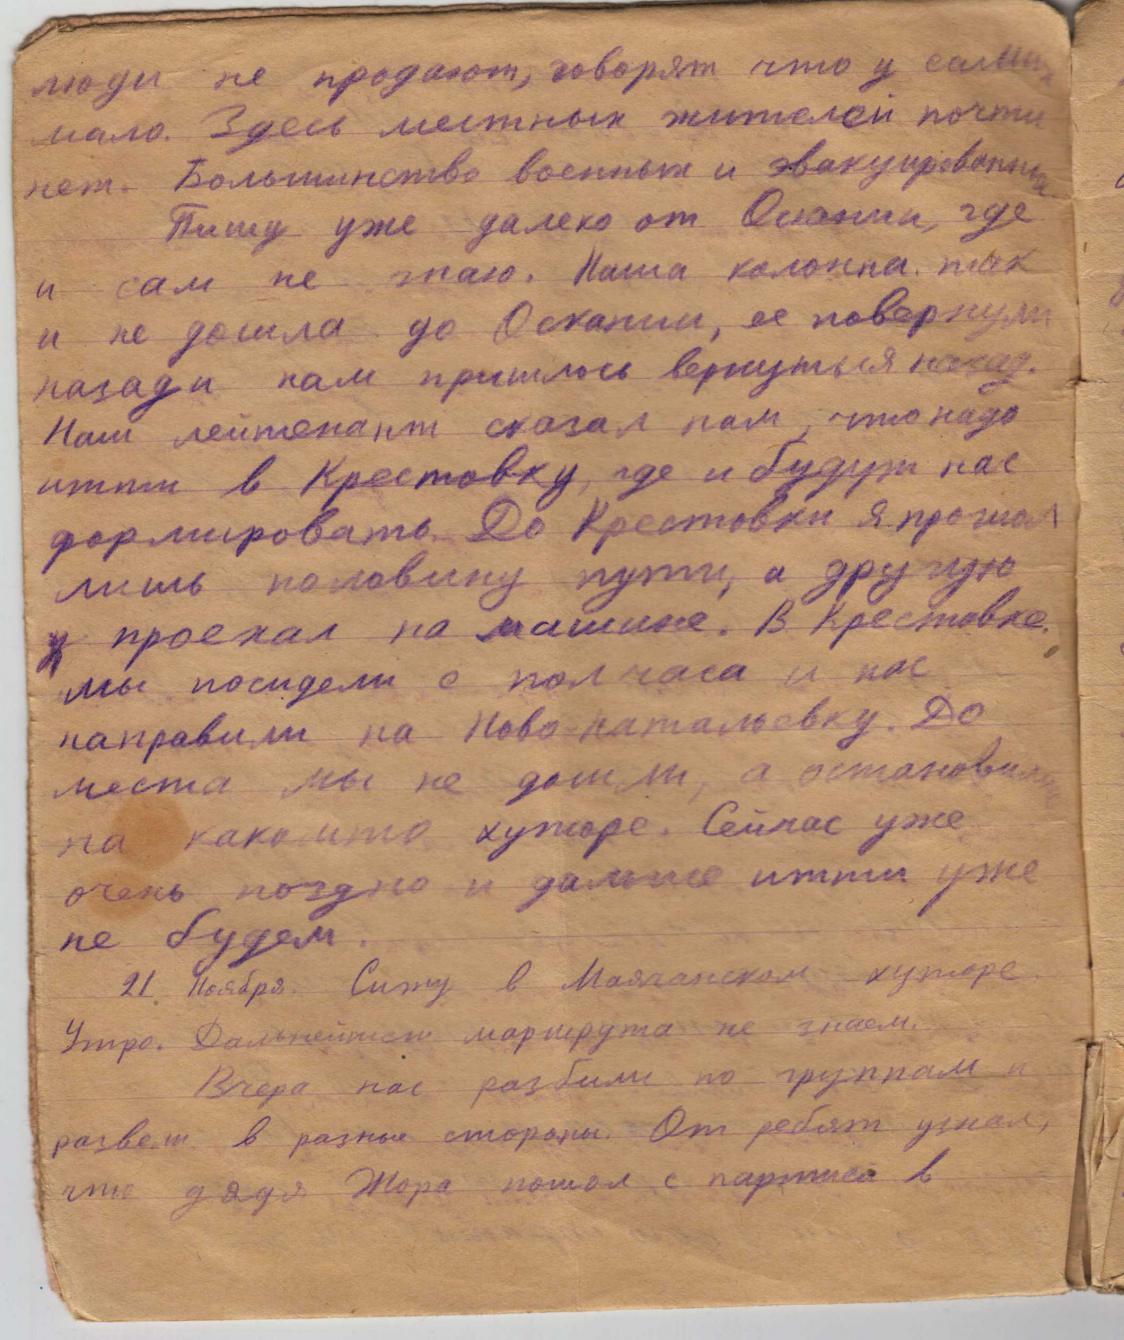 люди не продают, говорят что у самих
мало. Здесь местных жителей почти
нет. Большинство военных и эвакуированных
Пишу уже далеко от Аскании, где
и сам не знаю. Наша колонна так
и не дошла до Оскании, ее повернули
назад и нам пришлось вернуться назад.
Наш лейтенант сказал нам, что надо
итти в Крестовку, где и будут нас
формировать. До Крестовки я прошол
лишь половину пути, а другую
проехал на машине. В Крестовке.
мы посидели с пол часа и нас
направили на Ново-натальевку. До
места мы не дошли, а остановились
на какомто хуторе. Сейчас уже
очень поздно и дальше итти уже
не будем.
21 Ноября. Сижу в Маячанском хуторе
Утро. Дальнейшего маршрута не знаем.
Вчера нас разбили по группам и
развели в разные стороны. От ребят узнал,
что дядя Жора пошол с партией в